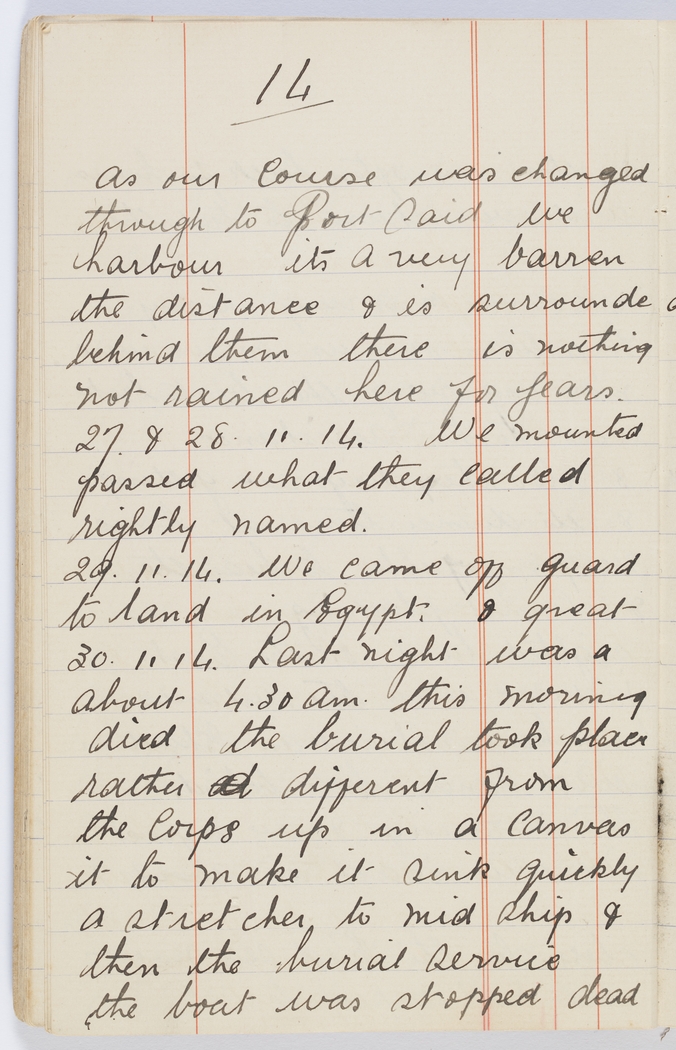 14
as our Course was changed
through to Port Said we
harbour its a very barren
the distance & is surrounde
behind them there is nothing
not rained here for years.
27. & 28. 11. 14. We mounted
passed what they called
rightly named.
29. 11. 14. We came off guard
to land in Egypt. & great
30. 11 14. Last night was a
about 4.30 am. this morning
died the burial took place
rather different from
the Corps up in a canvas
it to make it sink quickly
a stretcher to mid ship &
then the burial service
the boat was stopped dead